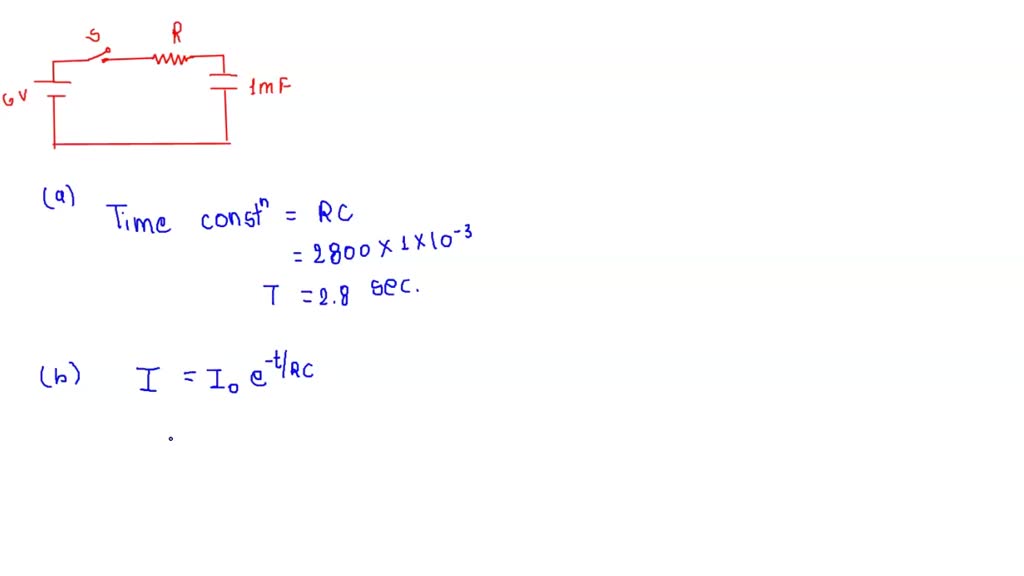 S R
6V 1mF
(a) Time constⁿ = RC
= 2800 × 1 × 10⁻³
T = 2.8 sec.
(b) I = I₀ e^-t/RC